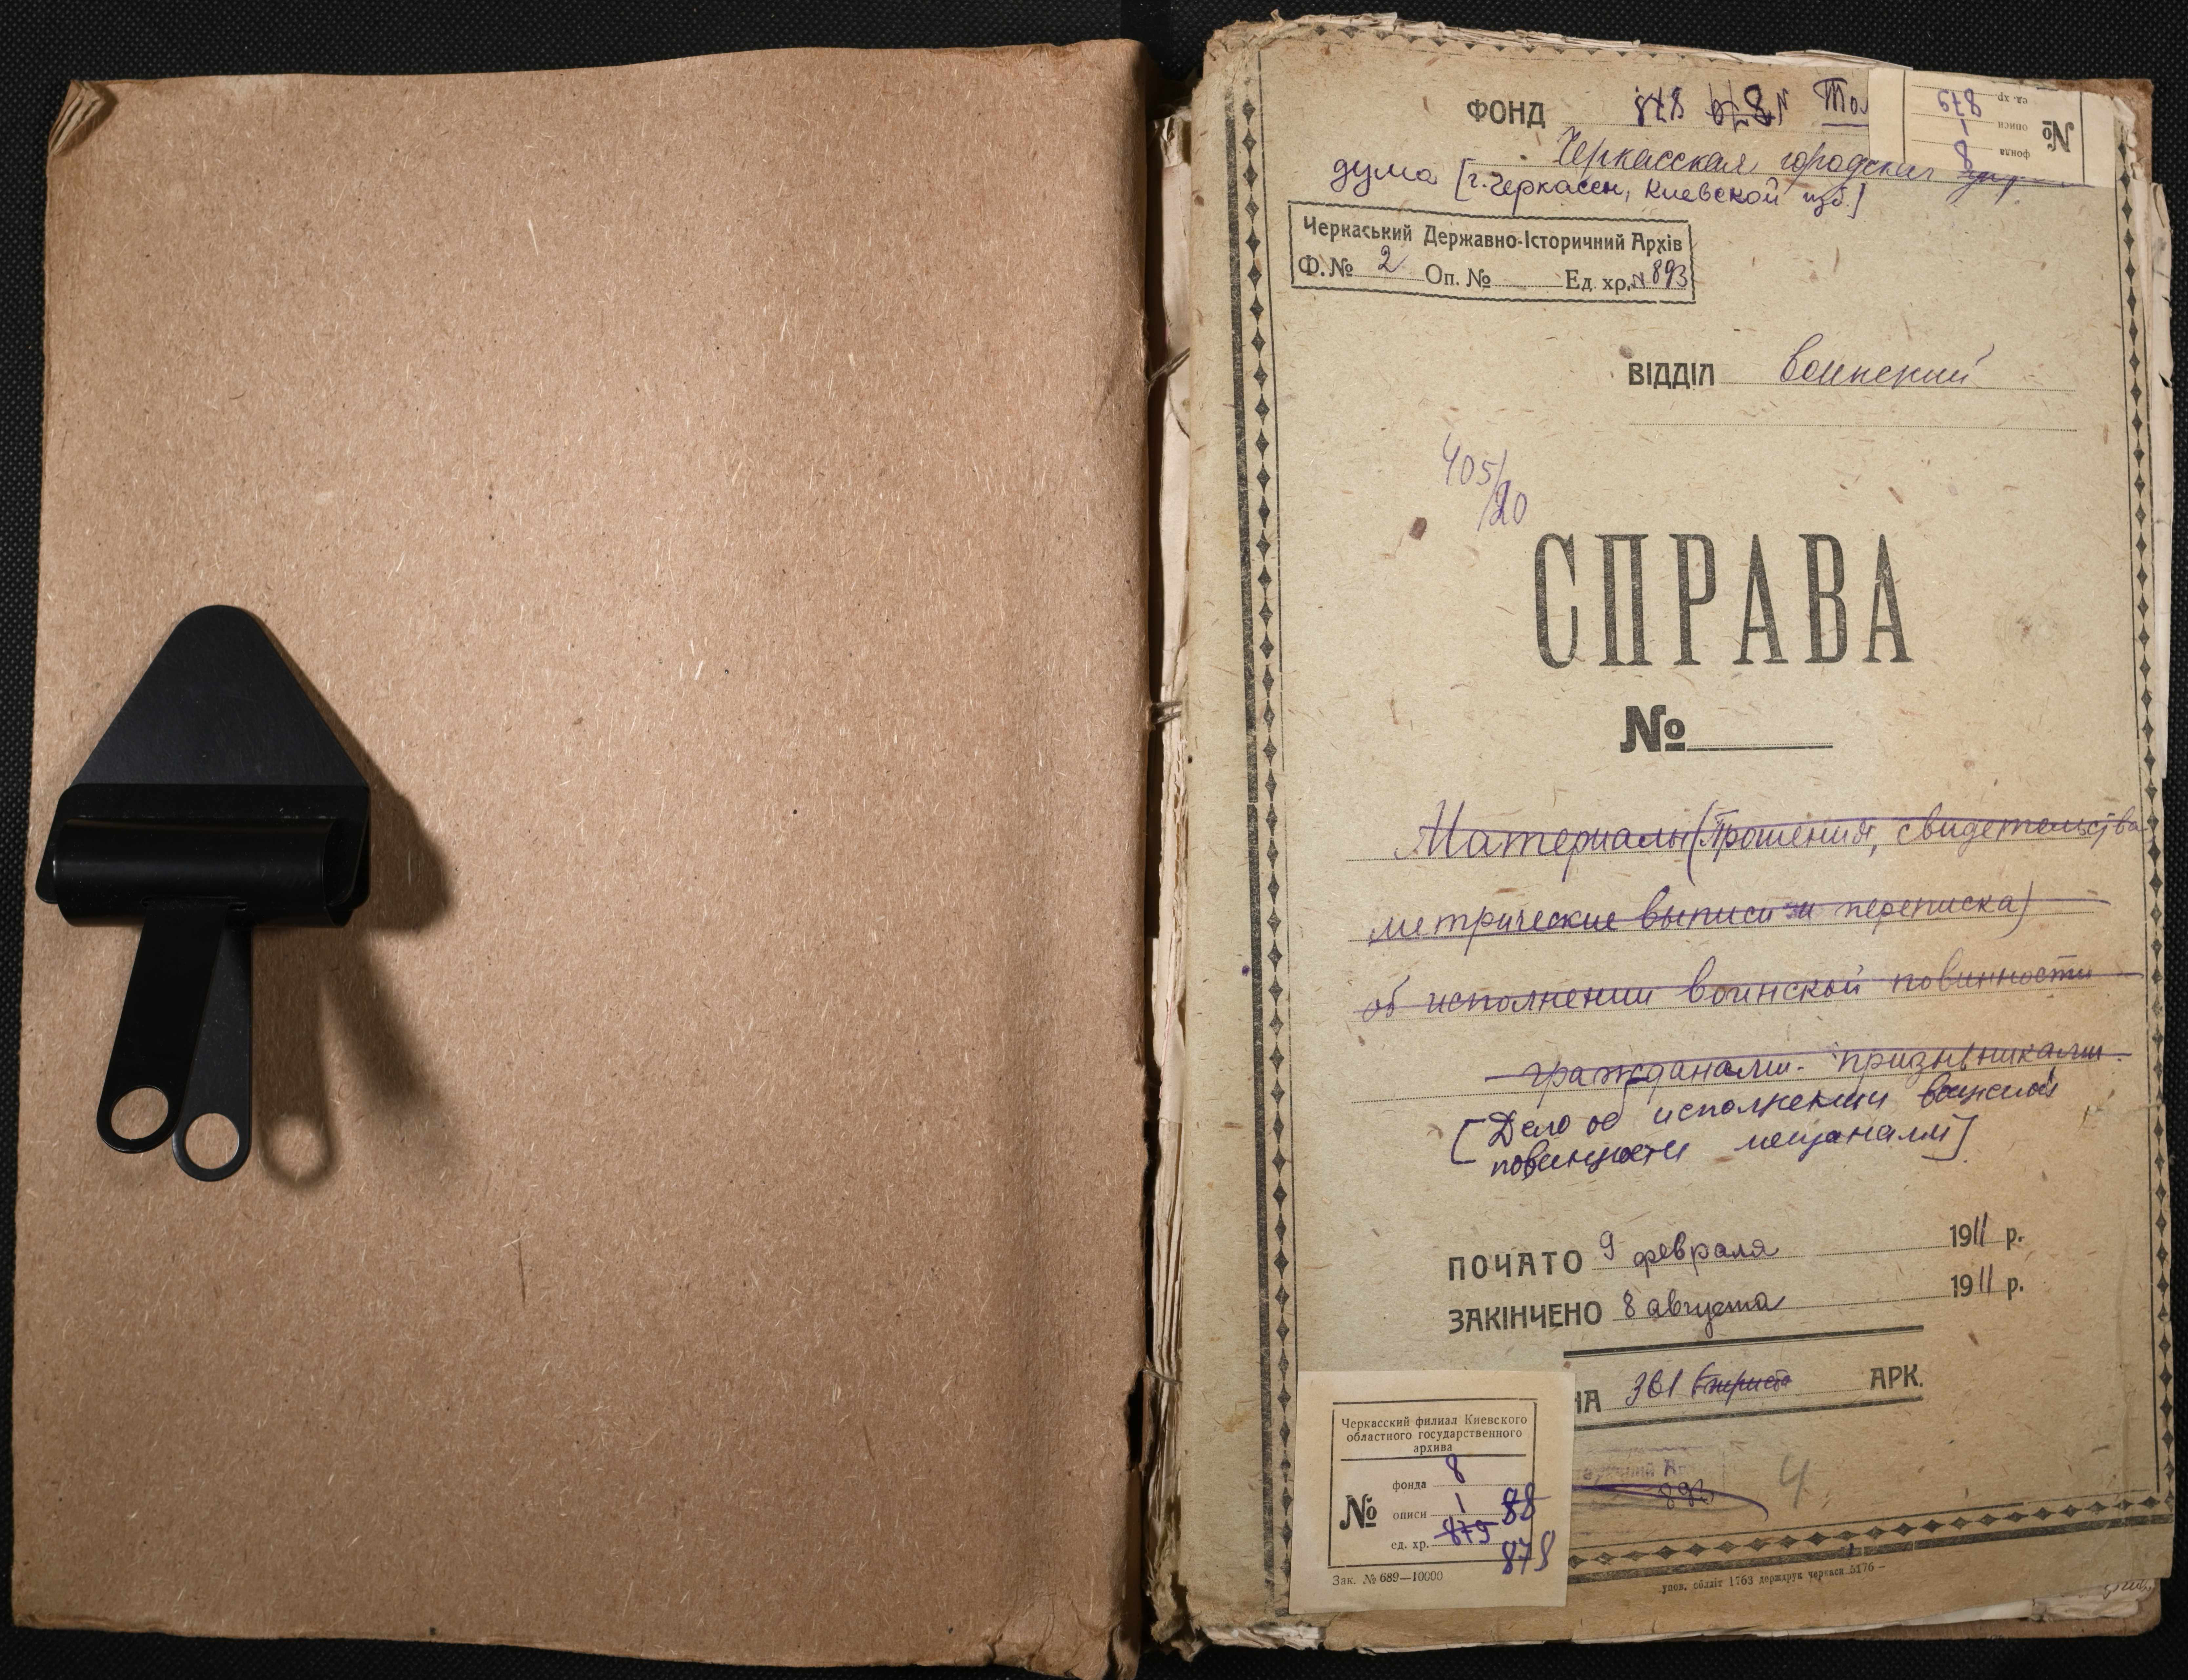 ФОНД 878
Черкасская городская
дума [г. Черкассы, Киевской губ.]
№
фонда 8
описи 1
ед. хр. 879
Черкаський Державно-Історичний Архів
Ф. № 2 Оп. № Ед. хр. № 893
ВІДДІЛ воинский
405/20
СПРАВА
№
Материалы (Прошения, свидетельства
метрические выписи и переписка)
об исполнении воинской повинности
гражданами призывниками.
[Дело об исполнении воинской
повинности мещанами]
ПОЧАТО 9 февраля 1911 р.
ЗАКІНЧЕНО 8 августа 1911 р.
НА 361 АРК.
893
4
Черкасский филиал Киевского
областного государственного
архива
№
фонда 8
описи 1 88
ед. хр. 879
878
Зак. № 689—10000
упов. обліт 1763 держдрук черкаси 5176 –